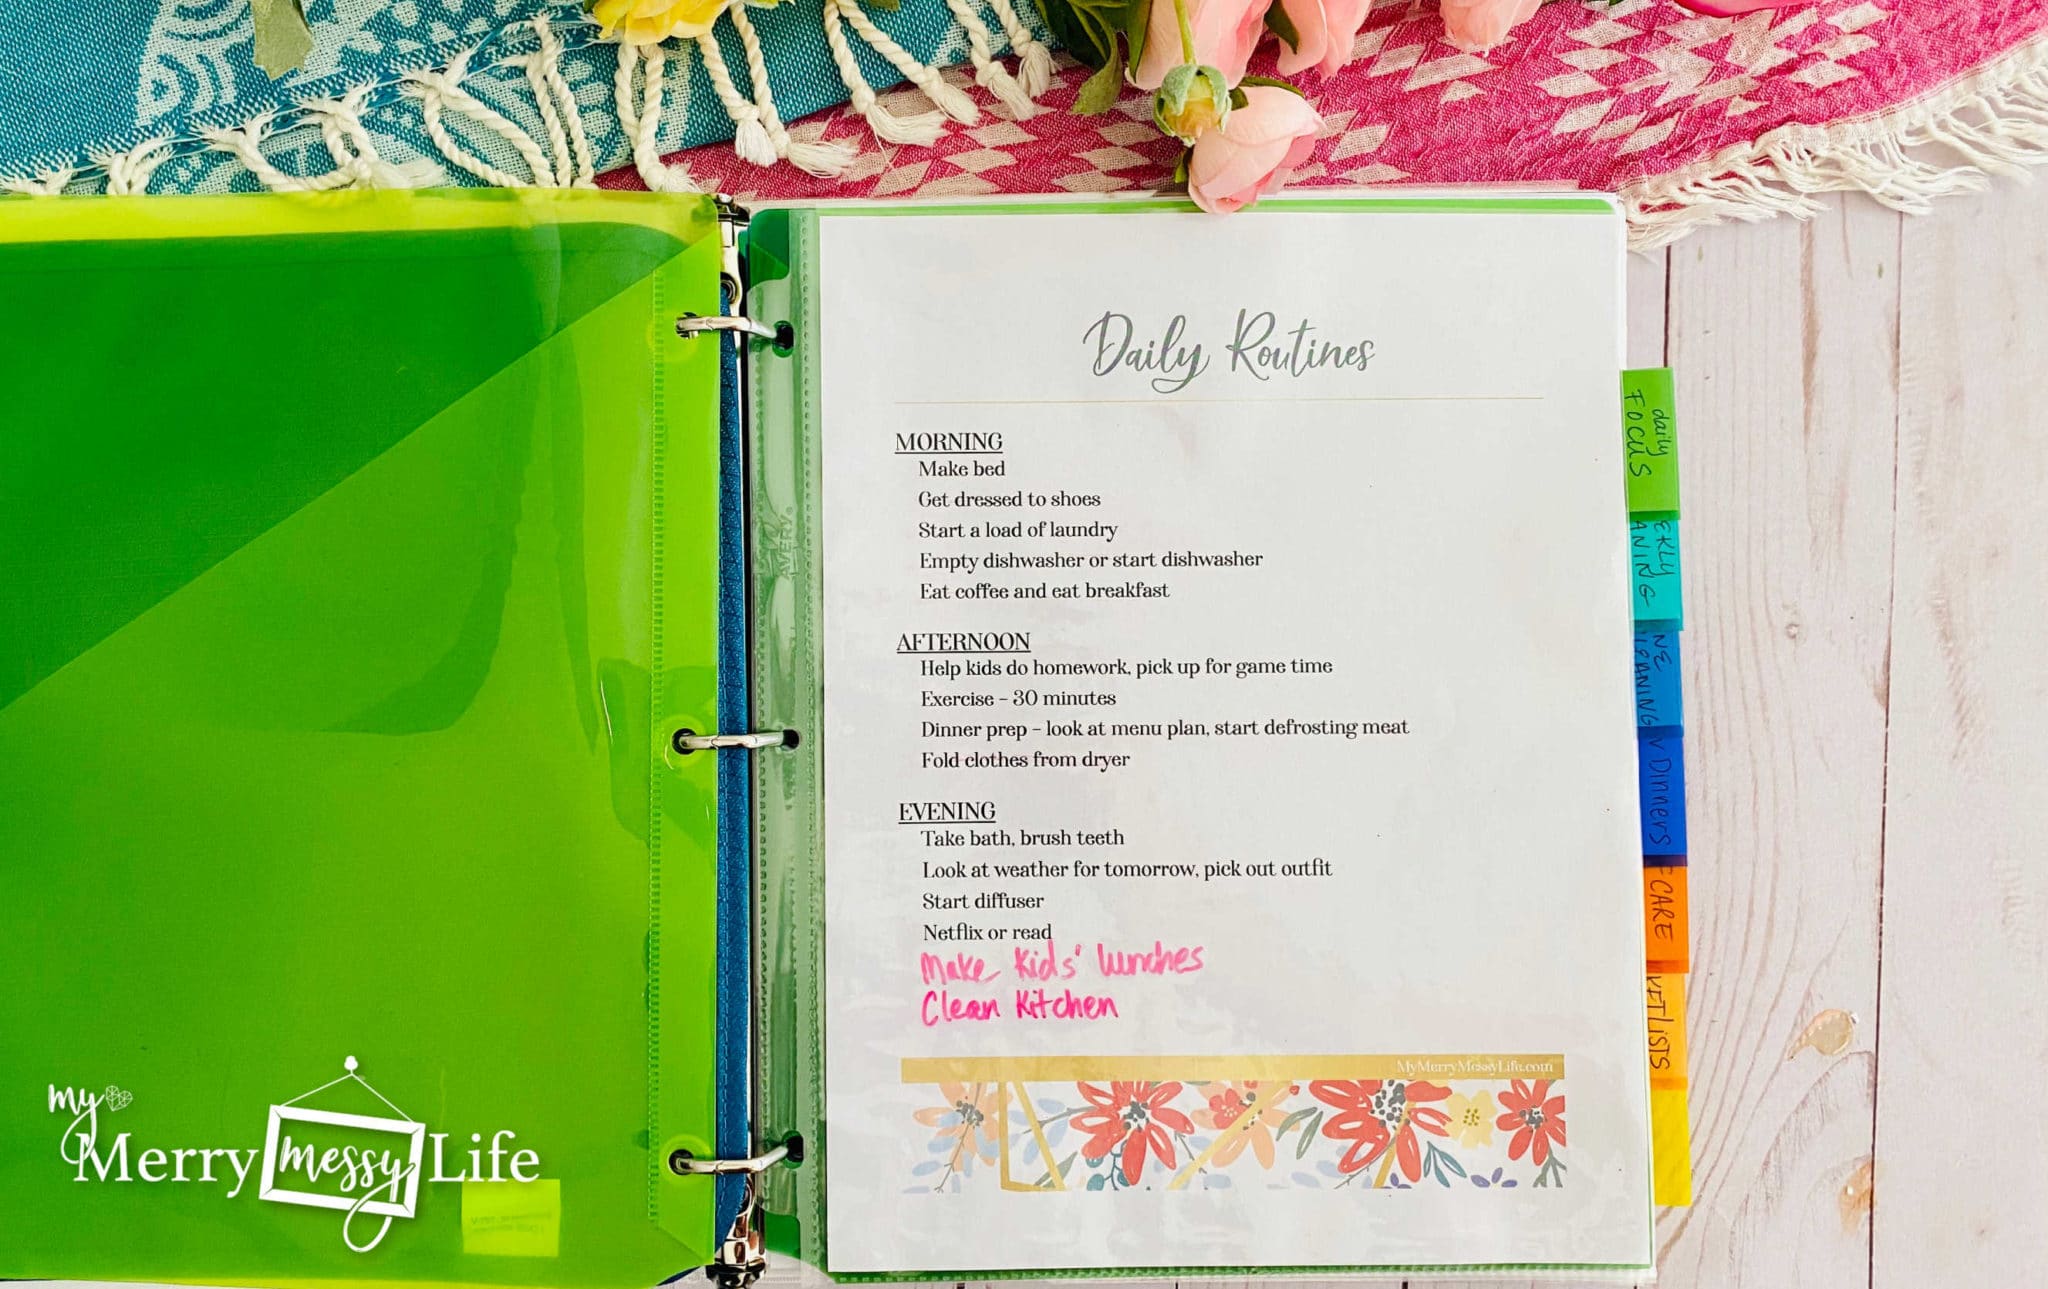 Daily Routines
MORNING
Make bed
Get dressed to shoes
Start a load of laundry
Empty dishwasher or start dishwasher
Eat coffee and eat breakfast
AFTERNOON
Help kids do homework, pick up for game time
Exercise – 30 minutes
Dinner prep – look at menu plan, start defrosting meat
Fold clothes from dryer
EVENING
Take bath, brush teeth
Look at weather for tomorrow, pick out outfit
Start diffuser
Netflix or read
Make Kids' lunches
Clean Kitchen
MyMerryMessyLife.com
AVERY
daily
FOCUS
EKLY
ANING
NE
EANING
Dinners
CARE
KET LISTS
my
Merry messy Life